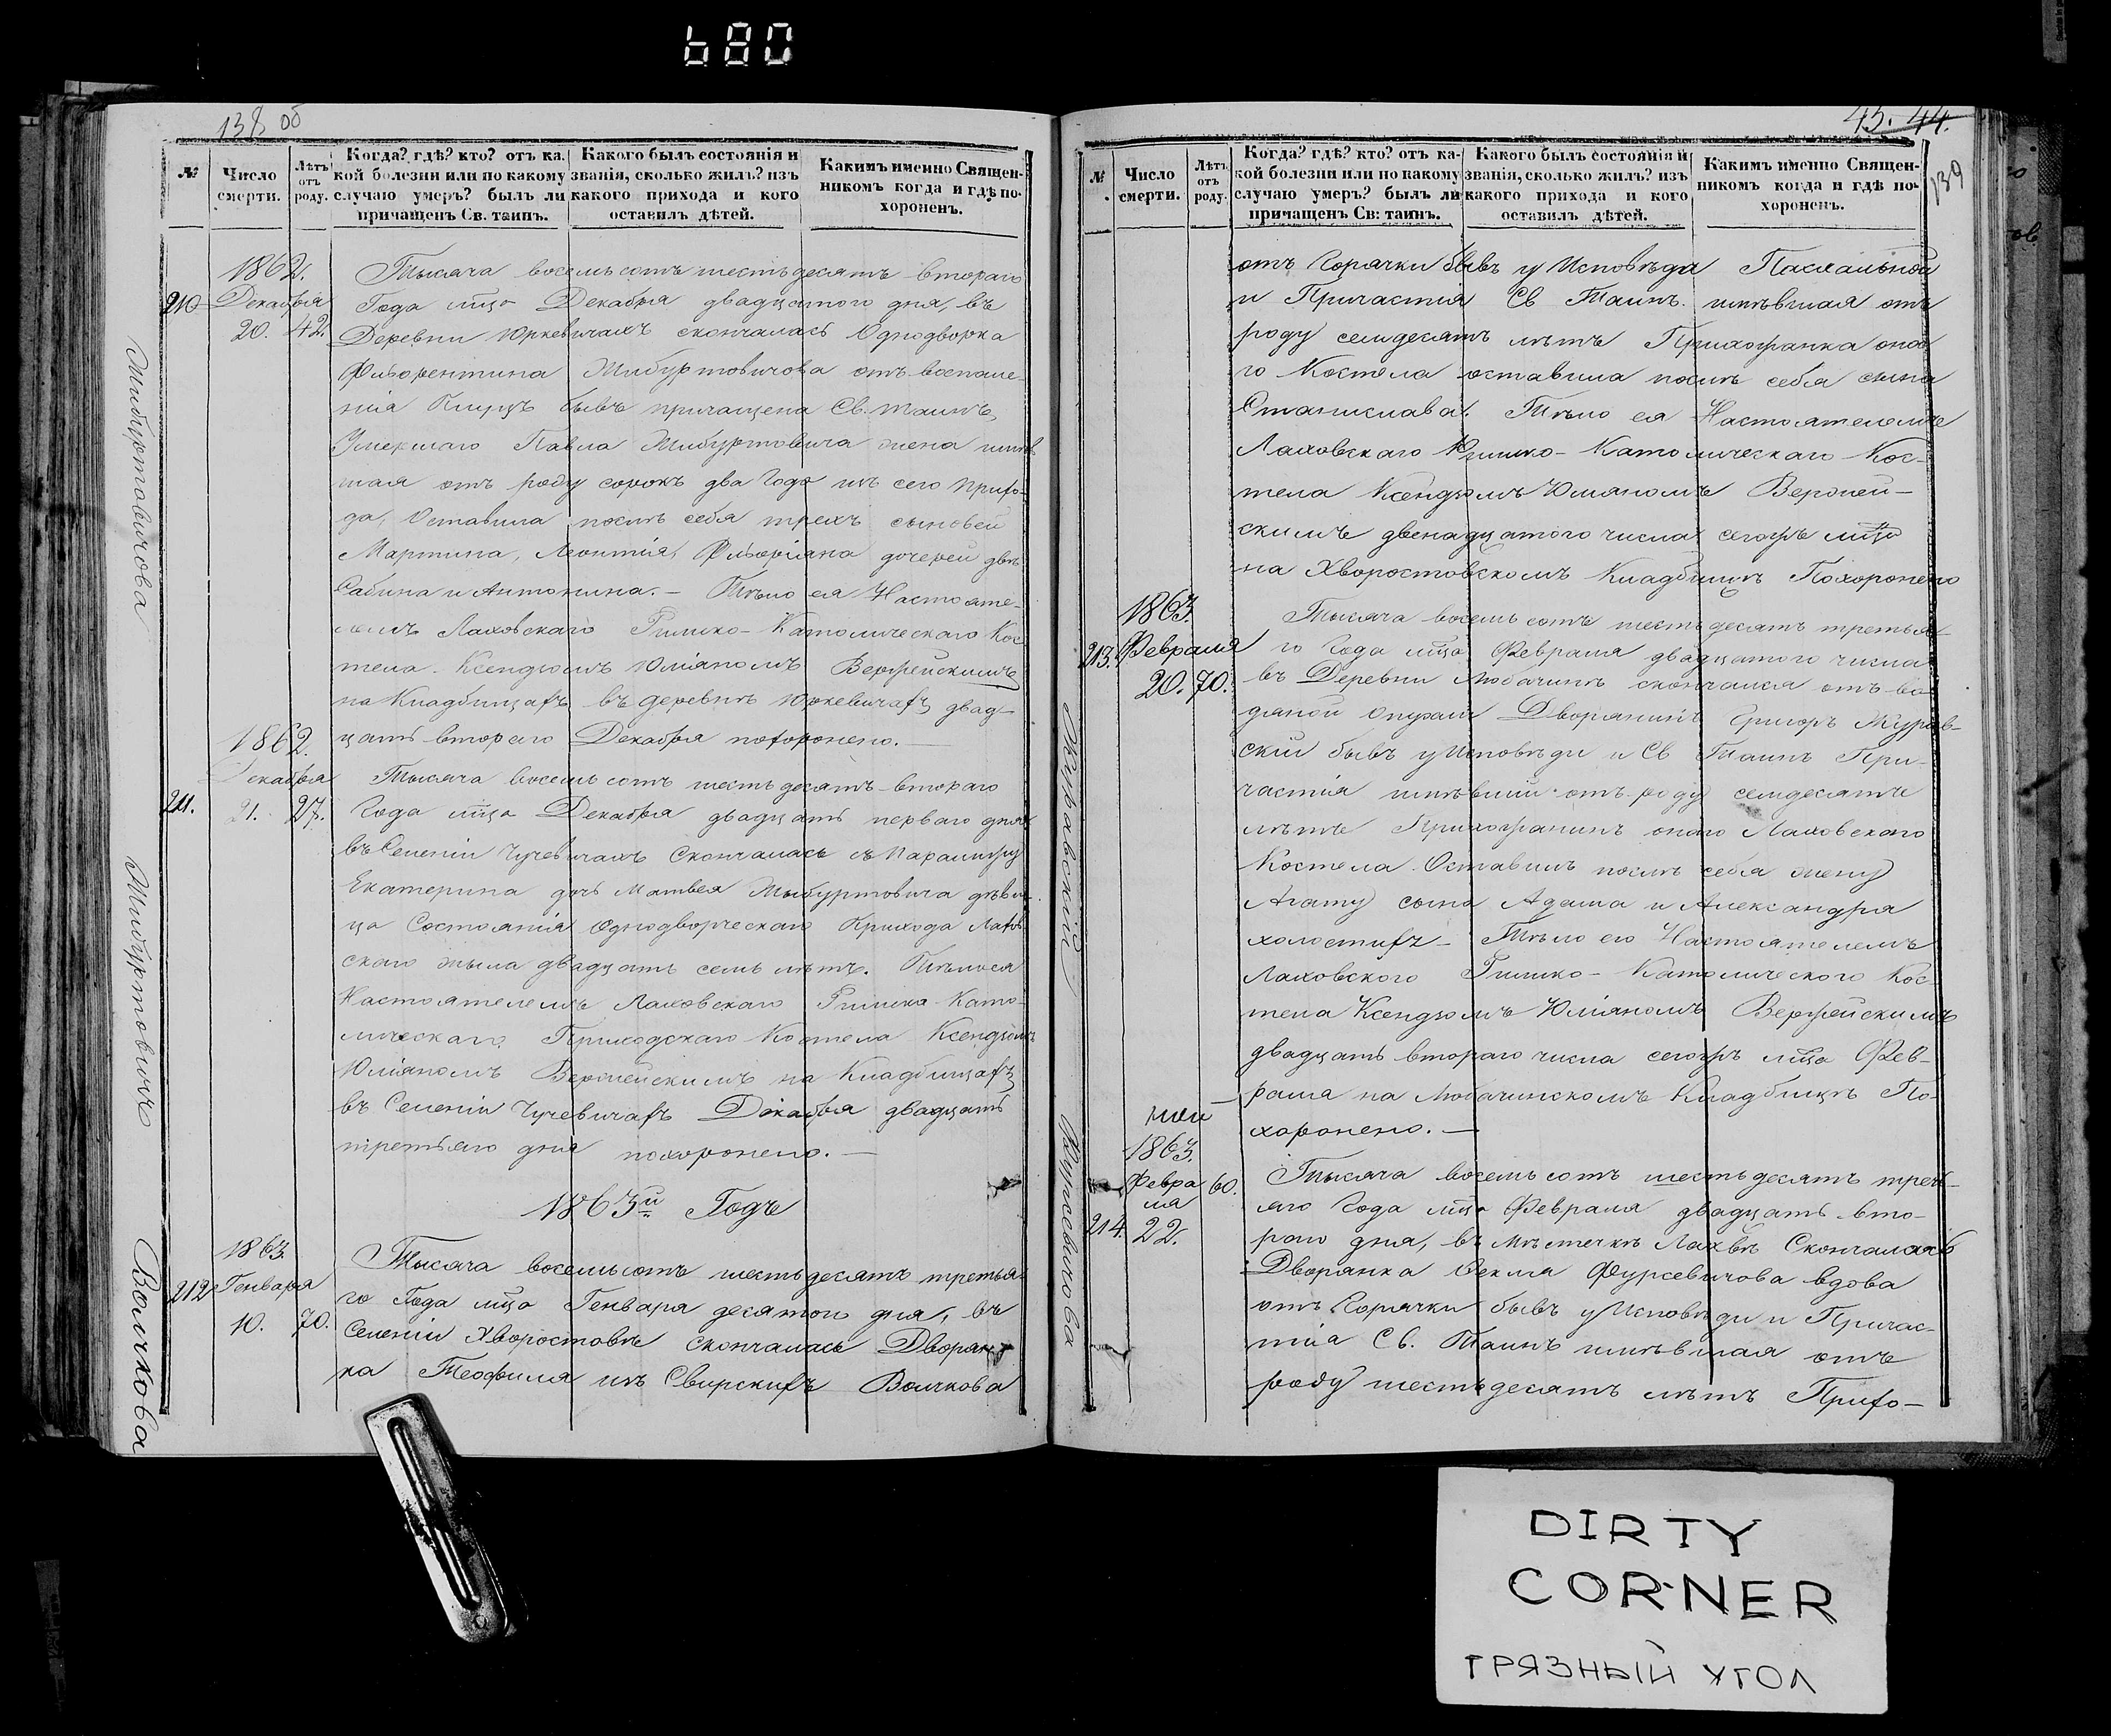 680
138 об
№
Число смерти.
Лѣтъ отъ роду.
Когда? гдѣ? кто? отъ ка-
кой болезни или по какому
случаю умеръ? былъ ли
причащенъ Св. таинъ.
Какого былъ состоянія и
званія, сколько жилъ? изъ
какого прихода и кого
оставилъ дѣтей.
Какимъ именно Священ-
никомъ когда и гдѣ по-
хороненъ.
Жибуртовичова
1862.
210
Декабря
20. 42.
Тысяча восемь сотъ шестьдесятъ втораго
Года мца Декабря двадцатого дня, въ
Деревни Юркевичахъ скончалась Однодворка
Флорентина Жибуртовичова отъ воспале-
нія бывъ причащена Св. таинъ,
Умершаго Павла Жибуртовича жена имѣв
шая отъ роду сорокъ два Года изъ сего прихо-
да, Оставила послѣ себя трехъ сыновей
Мартина, Леонтія, Флоріана дочерей двѣ
Сабина и Антонина. – Тѣло ея Настояте-
лемъ Лаховскаго Римско-Католическаго Кос
тела Ксендзомъ Юліаномъ Вержейскимъ
на Кладбищахъ въ деревнѣ Юркевичахъ двад-
цать второго Декабря похоронено. —
Жибуртовичъ
1862.
Декабря
211.
21. 27.
Тысяча восемь сотъ шестьдесятъ втораго
Года мца Декабря двадцать перваго дня
въ Селеніи Чучевичахъ Скончалась съ Паралижу
Екатерина дочь Матвея Жибуртовича дѣви-
ца Состоянія Однодворческаго Прихода Лахов
скаго жыла двадцать семь лѣтъ. Тѣло ея
Настоятелемъ Лаховскаго Римско-Като-
лическаго Приходскаго Костела Ксендзомъ
Юліаномъ Вержейскимъ на Кладбищахъ
въ Селеніи Чучевичахъ Декабря двадцать
третьяго дня похоронено. —
1863й Годъ
Волчкова
1863.
212
Генваря
10. 70.
Тысяча восемьсотъ шестьдесятъ третья
го Года мца Генваря десятого дня, въ
Селеніи Хворостовѣ скончалась Дворян-
ка Теофиля изъ Свирскихъ Волчкова
45. 44.
139
№
Число смерти.
Лѣтъ отъ роду.
Когда? гдѣ? кто? отъ ка-
кой болезни или по какому
случаю умеръ? былъ ли
причащенъ Св: таинъ.
Какого былъ состоянія и
званія, сколько жилъ? изъ
какого прихода и кого
оставилъ дѣтей.
Какимъ именно Священ-
никомъ когда и гдѣ по-
хороненъ.
отъ Горячки бывъ у Исповѣда Пасхальной
и Причастія Св Таинъ. имѣвшая отъ
роду семдесятъ лѣтъ Прихожанка она
го Костела оставила послѣ себя сына
Станислава. Тѣло ея Настоятелемъ
Лаховскаго Римско-Католическаго Кос-
тела Ксендзомъ Юліаномъ Вержей-
скимъ двенадцатого числа сегожъ мца
на Хворостовскомъ Кладбищѣ Похоронено
Журавскій
1863.
213.
Февраля
20. 70.
Тысяча восемь сотъ шестьдесятъ третья-
го Года мца Февраля двадцатого числа
въ Деревни Любачинѣ скончался отъ во-
дяной опухли Дворянинъ Григоръ Журав-
скій бывъ у Исповѣди и Св Таинъ При-
частія имѣвшій отъ роду семдесятъ
лѣтъ Прихожанинъ онаго Лаховскаго
Костела Оставилъ послѣ себя жену
Агату сына Адама и Александра
холостыхъ – Тѣло его Настоятелемъ
Лаховского Римско-Католического Кос-
тела Ксендзомъ Юліаномъ Вержейскимъ
двадцать втораго числа сегожъ мца Фев-
раля на Любачинскомъ Кладбищѣ По-
хоронено. —
Фурсевичова
1863.
Февра
ля
60.
214.
22.
Тысяча восемь сотъ шестьдесятъ треть-
яго Года мца Февраля двадцать вто-
раго дня, въ мѣстечкѣ Лахвѣ Скончалась
Дворянка Текля Фурсевичова вдова
отъ Горячки бывъ у Исповѣди и Причас-
тія Св. Таинъ имѣвшая отъ
роду шестьдесятъ лѣтъ Прихо-
DIRTY
CORNER
ГРЯЗНЫЙ УГОЛ